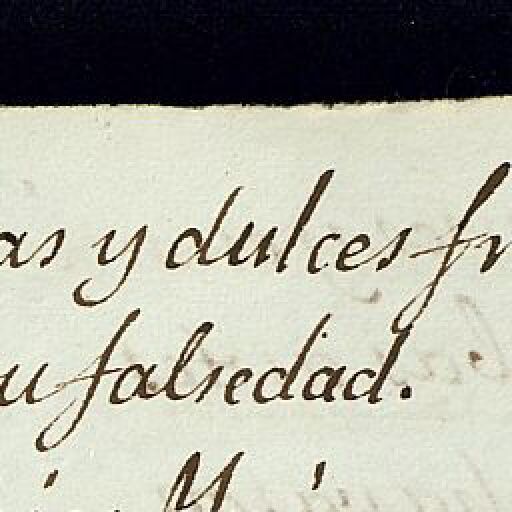 as y dulces fr
u falsedad.